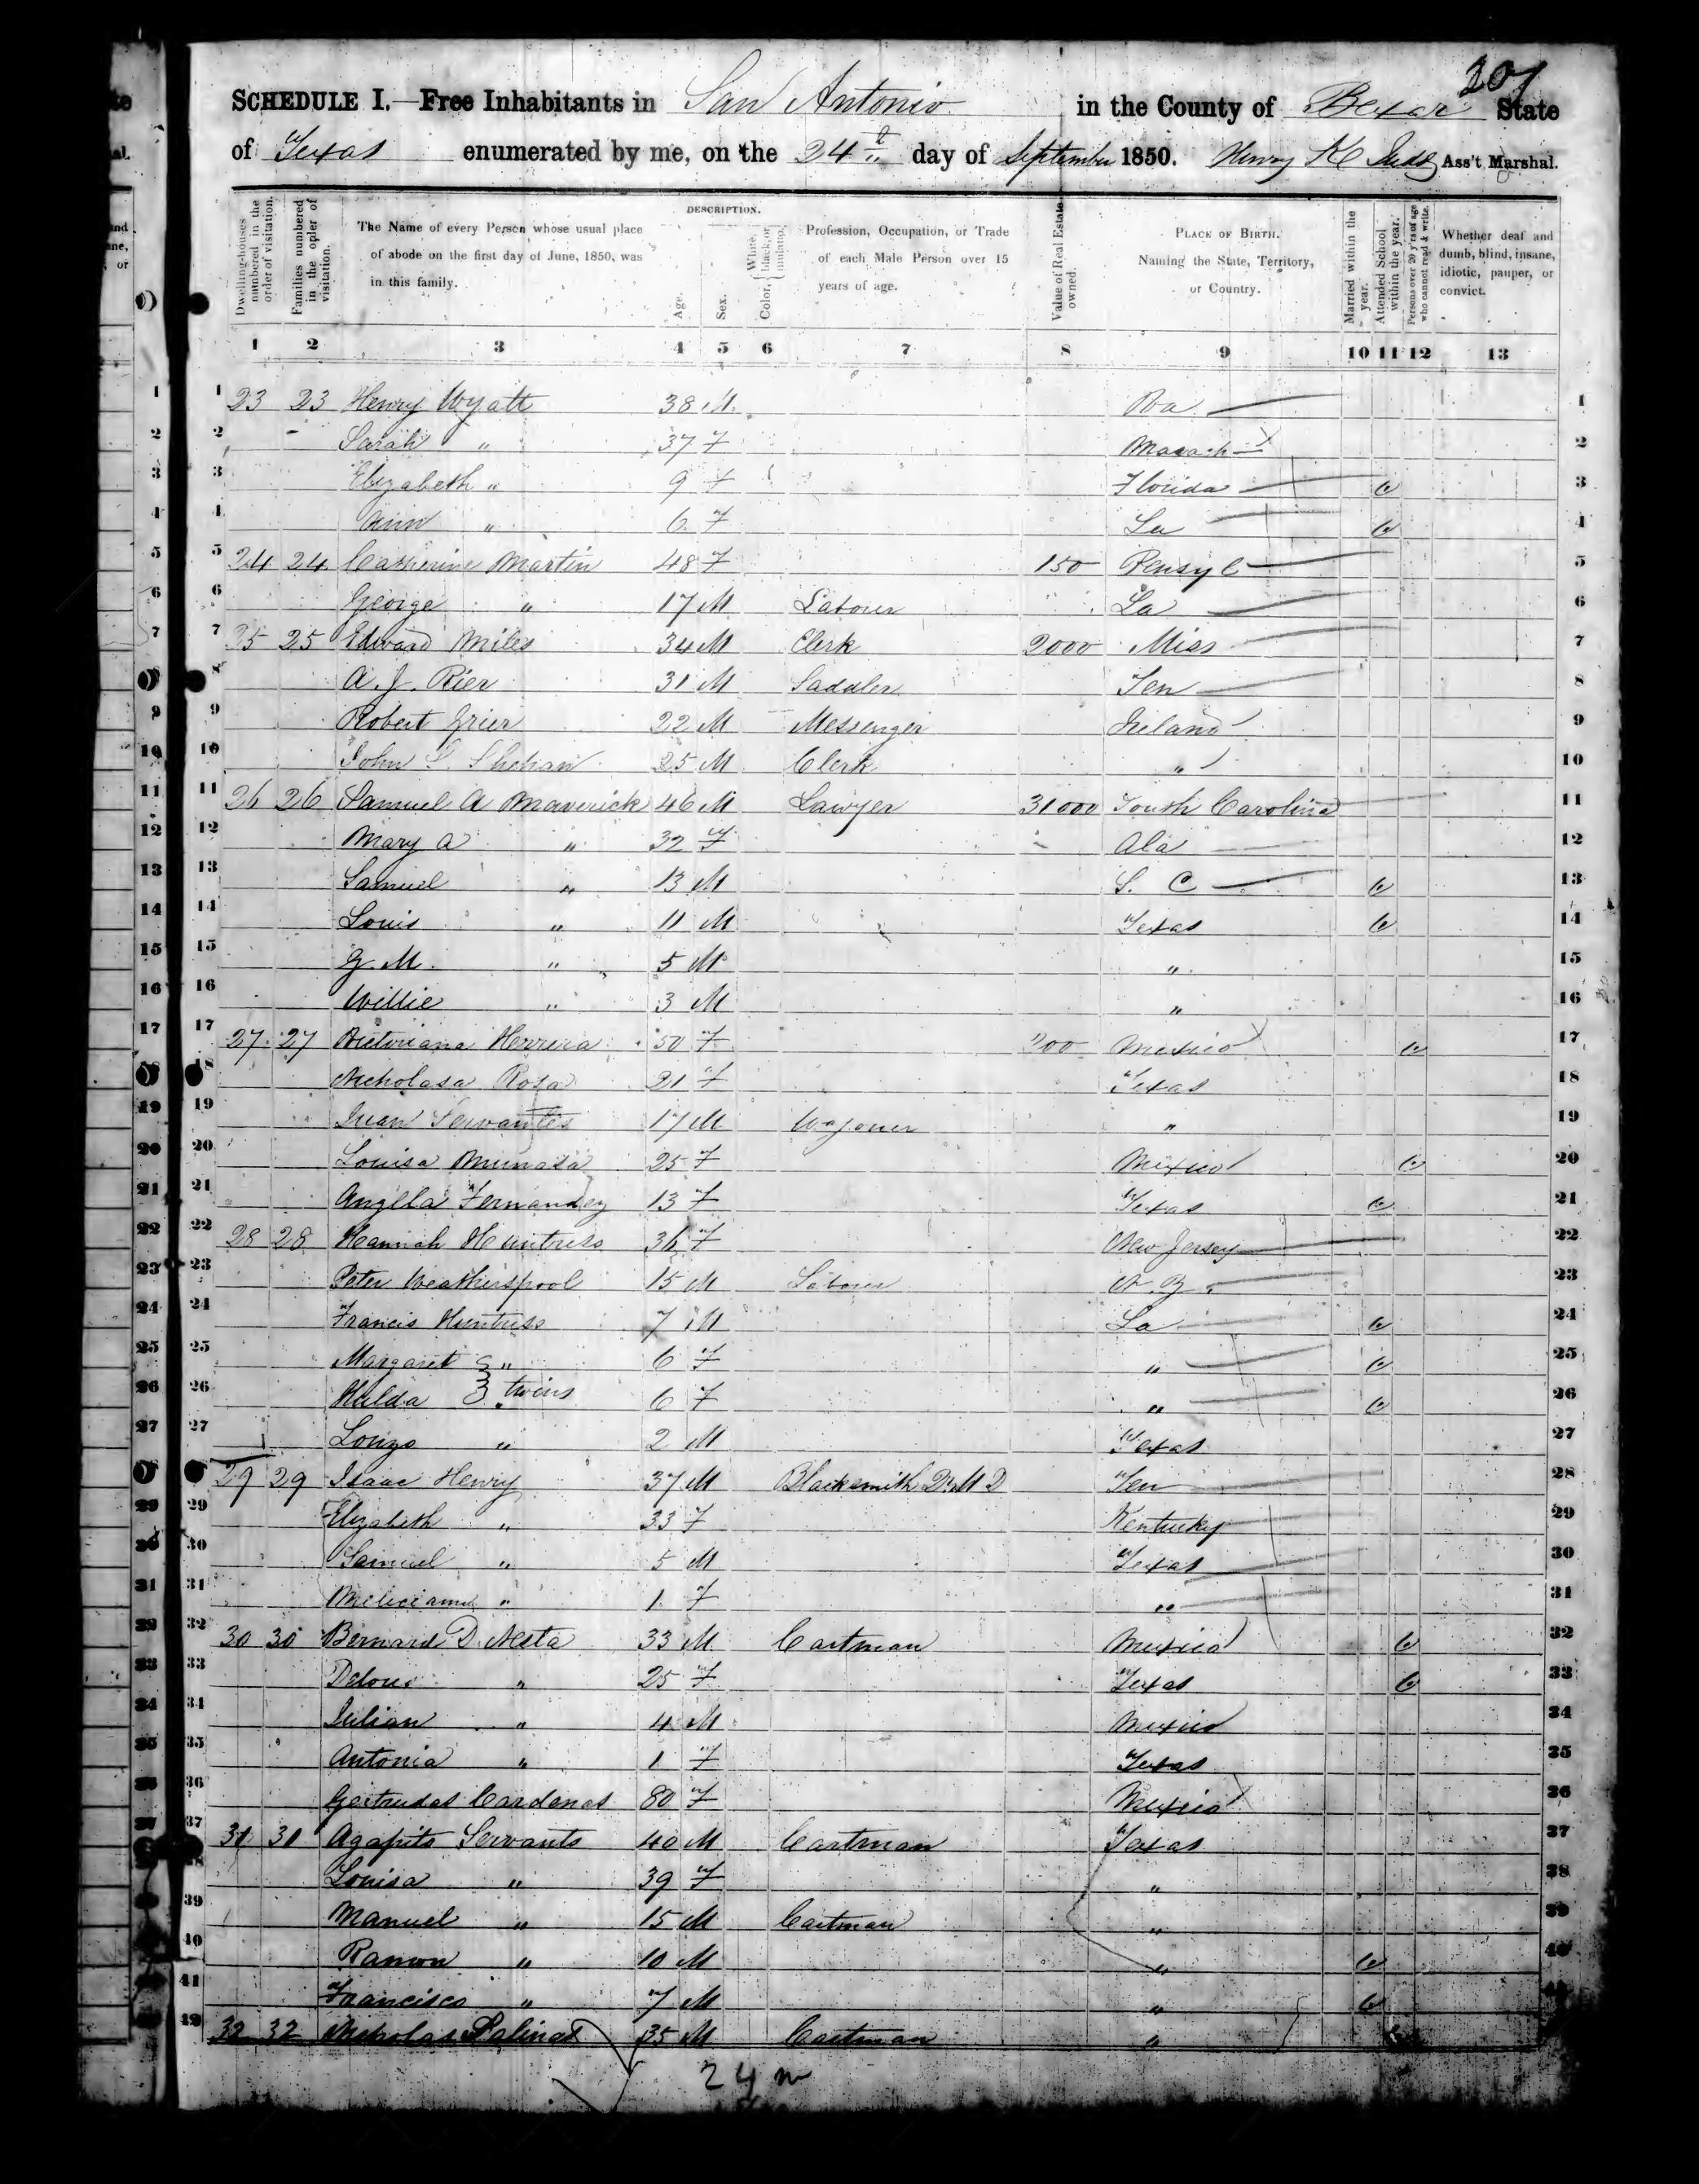 201
SCHEDULE I.—Free Inhabitants in San Antonio in the County of Bexar State
of Texas enumerated by me, on the 24th day of September 1850. Henry K Ass't Marshal.
Dwelling-houses numbered in the order of visitation.
Families numbered in the order of visitation.
The Name of every Person whose usual place of abode on the first day of June, 1850, was in this family.
DESCRIPTION.
Age.
Sex.
Color, { White, black, or mulatto.
Profession, Occupation, or Trade of each Male Person over 15 years of age.
Value of Real Estate owned.
PLACE OF BIRTH. Naming the State, Territory, or Country.
Married within the year.
Attended School within the year.
Persons over 20 y'rs of age who cannot read & write.
Whether deaf and dumb, blind, insane, idiotic, pauper, or convict.
1 2 3 4 5 6 7 8 9 10 11 12 13
1 23 23 Henry Wyatt 38 M 1
2 Sarah " 37 F 2
3 Elizabeth " 9 F Florida 3
4 Ann " 6 F La 4
5 24 24 Catherine Martin 48 F 150 Pensyl 5
6 George " 17 M Labourer La 6
7 25 25 Edward Miles 34 M Clerk 2000 Miss 7
8 A. J. Rier 31 M Saddler Ten 8
9 Robert Grier 22 M Messenger Ireland 9
10 John Shehan 25 M Clerk " 10
11 26 26 Samuel A Maverick 46 M Lawyer 31000 South Carolina 11
12 Mary A " 32 F Ala 12
13 Samuel " 13 M S. C 13
14 Louis " 11 M Texas 14
15 G. M. " 5 M " 15
16 Willie " 3 M " 16
17 27 27 Herrera 50 F Mexico 17
18 Nicholasa Rosa 21 F Texas 18
19 Juan Servantes 17 M Wagoner " 19
20 Louisa 25 F Mexico 20
21 Angela Fernandez 13 F Texas 21
22 28 28 Hannah Huntress 36 F New Jersey 22
23 Peter Weatherspool 15 M Labourer 23
24 Francis Huntress 7 M La 24
25 Margaret " 6 F " 25
26 Hulda } twins 6 F " 26
27 Lonzo " 2 M Texas 27
29 29 Isaac Henry 37 M Blacksmith Ten 28
29 Elizabeth " 33 F Kentucky 29
30 Samuel " 5 M Texas 30
31 " 1 F " 31
32 30 30 Bernard D 33 M Cartman Mexico 32
33 " 25 F Texas 33
34 Julian " 4 M Mexico 34
35 Antonia " 1 F Texas 35
36 Gertrudas Cardenas 80 F Mexico 36
37 31 31 Agapito Servants 40 M Cartman Texas 37
38 Louisa " 39 F " 38
39 Manuel " 15 M Cartman " 39
40 Ramon " 10 M " 40
41 Francisco " 7 M "
42 32 32 Nicholas Salinas 35 M Cartman "
24 m